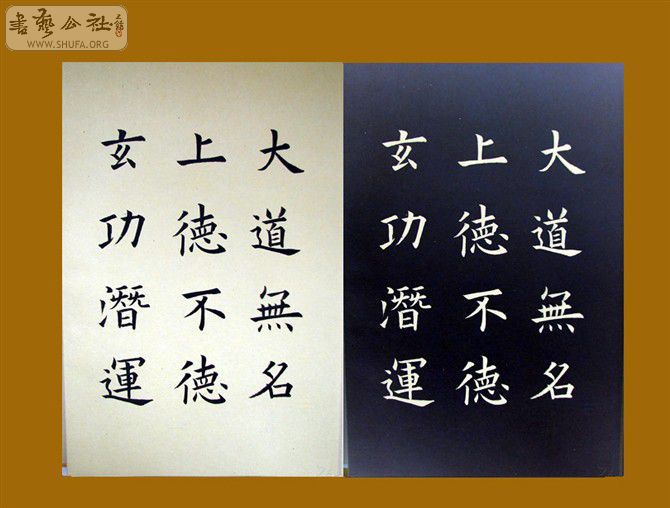 書藝公社
WWW.SHUFA.ORG
大道無名
上徳不徳
玄功潛運
大道無名
上徳不徳
玄功潛運